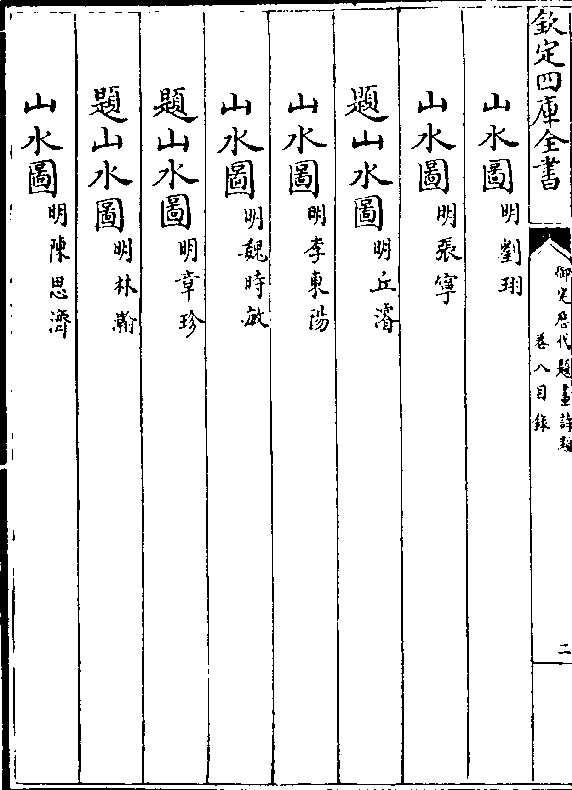 欽定四庫全書
御定歷代題畫詩類
卷八目錄
二
山水圖 明劉珝
山水圖 明張寧
題山水圖 明丘濬
山水圖 明李東陽
山水圖 明魏時敏
題山水圖 明章珍
題山水圖 明林瀚
山水圖 明陳思濟